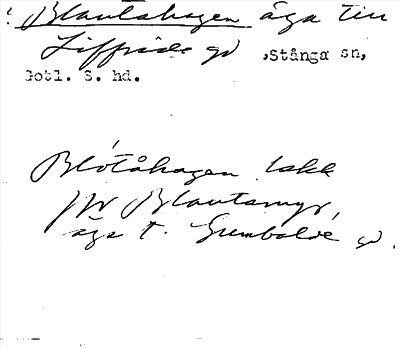 : Blautahagen äga till
Liffride gd , Stånga sn,
Gotl. S. hd.
Blótåhagen
jfr Blautamyr,
äga t. Gumbalde gd.